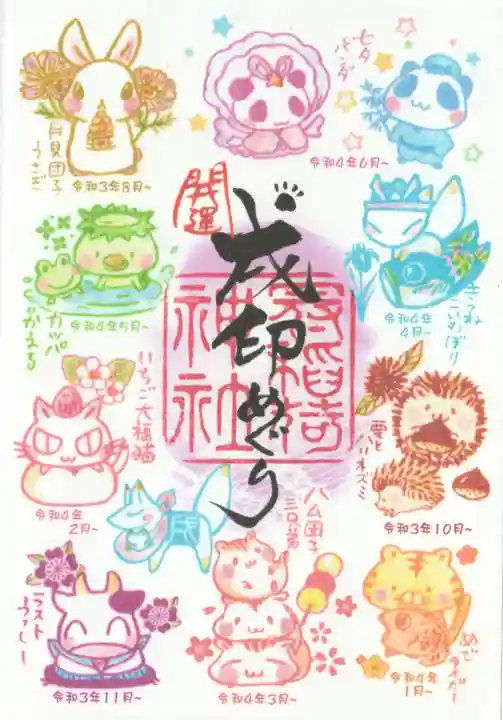 月見団子
うさぎ
令和3年8月~
七夕
パンダ
令和4年6月~
開運
戌印めぐり
神社
カッパ
かえる
令和4年5月~
きつね
こいのぼり
令和4年
4月~
いちご大福猫
令和4年
2月~
栗と
ハリネズミ
令和3年10月~
ハム団子
三兄弟
令和4年3月~
ラスト
うっしー
令和3年11月~
めで
タイガー
令和4年
1月~